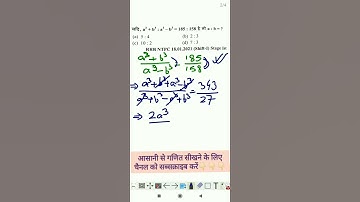 2/4
यदि, a³ + b³ : a³ − b³ = 185 : 158 है तो a : b = ?
(a) 5 : 4
(b) 2 : 3
(c) 10 : 2
(d) 7 : 3
RRB NTPC 16.01.2021 (Shift-I) Stage Ist
a³ + b³ / a³ − b³ = 185 / 158
⇒ a³ + b³ + a³ − b³ / a³ + b³ − a³ + b³ = 343 / 27
⇒ 2a³
आसानी से गणित सीखने के लिए
चैनल को सब्सक्राइब करें👇👇👇